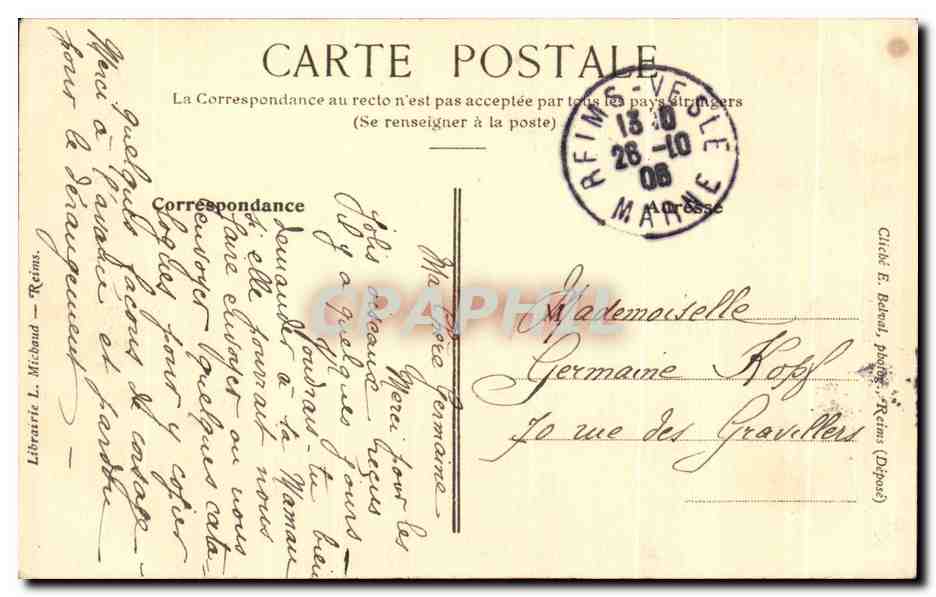 CARTE POSTALE
La Correspondance au recto n'est pas acceptée par tous les pays étrangers
(Se renseigner à la poste)
REIMS-VESLE
13 10
26 -10
06
MARNE
Correspondance
Adresse
Ma chère Germaine
Merci pour les
jolis oiseaux reçus
il y a quelques jours -
Voudrais-tu bien
demander à ta Maman
si elle pourrait nous
faire envoyer ou nous
envoyer quelques cata-
logues pour y copier
quelques façons de corsage -
Merci à l'avance et pardon
pour le dérangement -
Mademoiselle
Germaine Kopf
70 rue des Gravilliers
Librairie L. Michaud — Reims.
Cliché E. Belval, photog., Reims (Déposé)
CPAPHIL